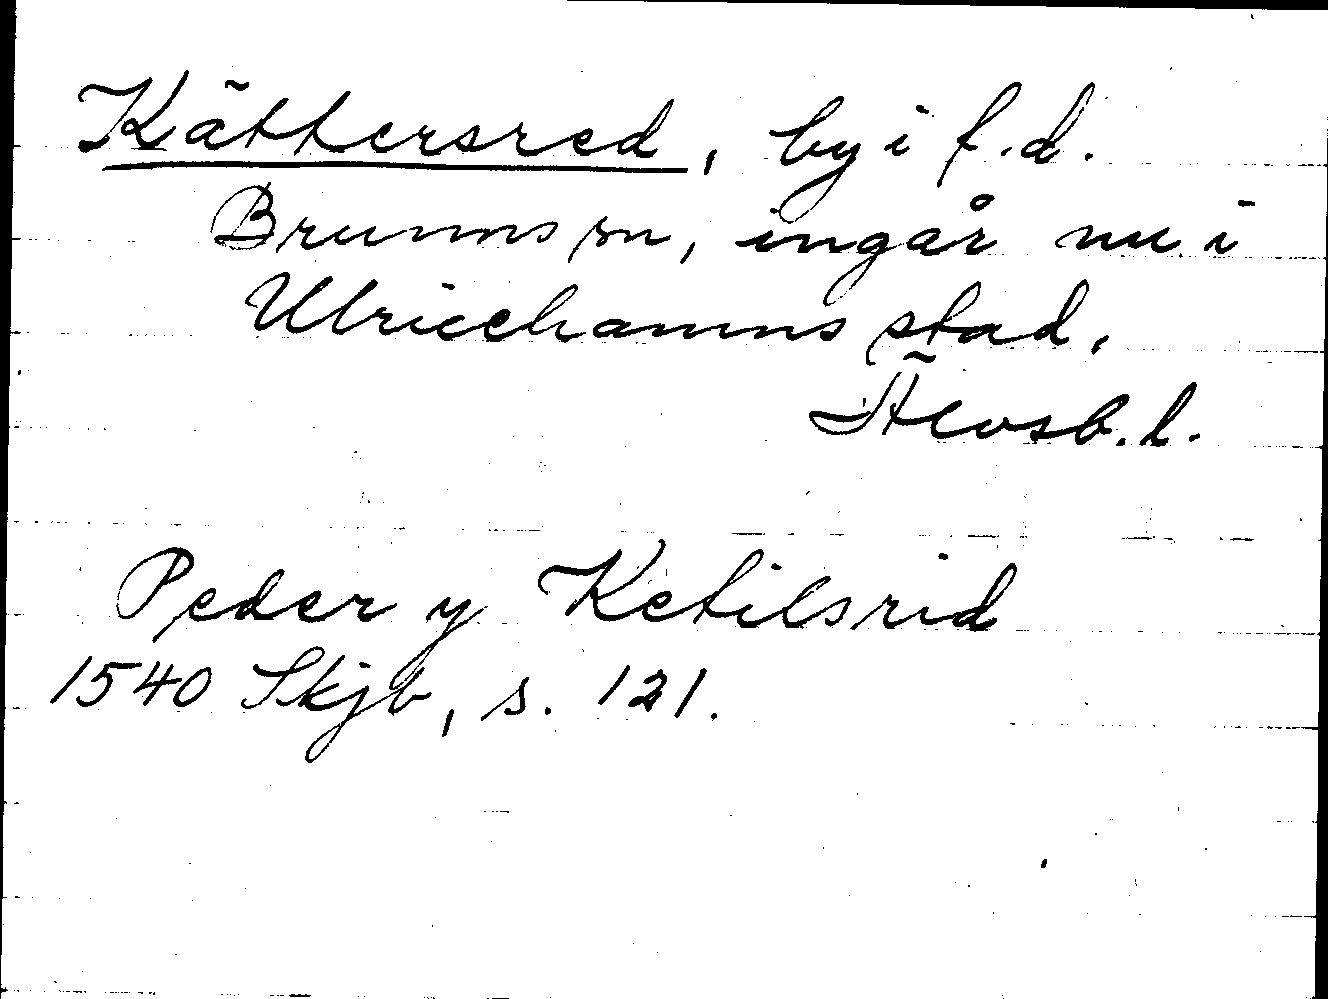 Kättersred, by i f.d.
Brunns sn, ingår nu i
Ulricehamns stad,
Älvsb. l.
Peder y Ketilsrid
1540 Skjb, s. 121.